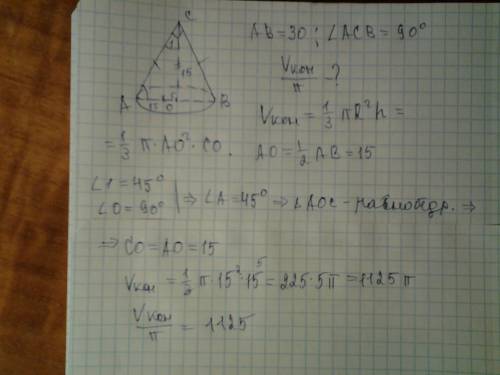 C
1
15
A
15
O
B
AB = 30 ; ∠ACB = 90°
Vкон/π - ?
Vкон = 1/3 πR²h =
= 1/3 π · AO² · CO.
AO = 1/2 AB = 15
∠1 = 45°
∠O = 90° | ⇒ ∠A = 45° ⇒ ∠AOC - равнобедр. ⇒
⇒ CO = AO = 15
Vкон = 1/3 π · 15² · 15 5 = 225 · 5π = 1125 π
Vкон/π = 1125